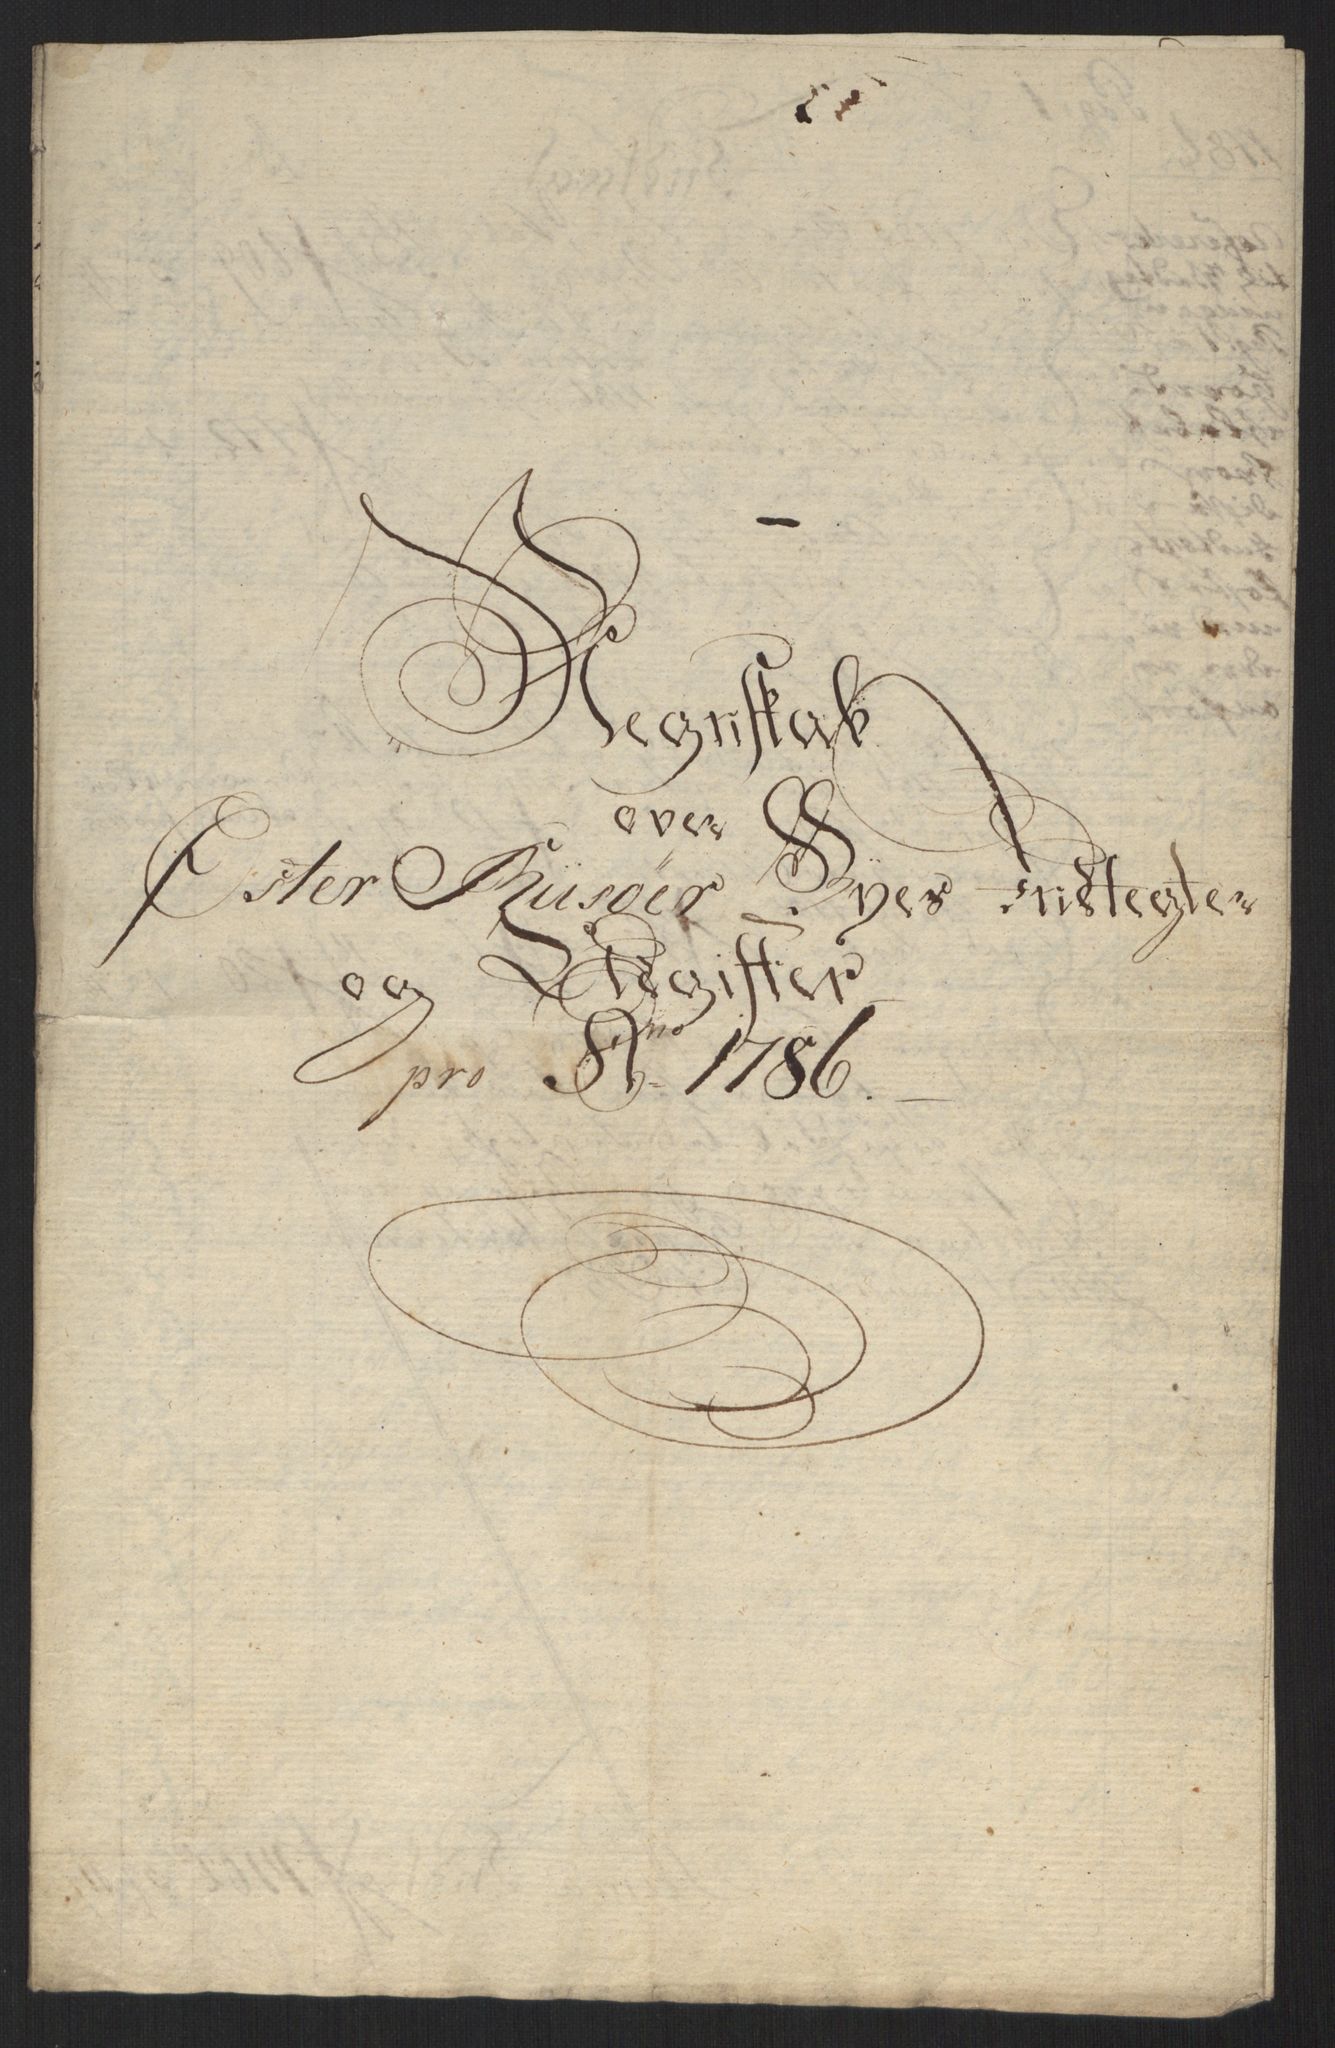 Regnskab
over
Öster Riisöer Byes Indtegter
og Udgifter
pro A<sup>no</sup> 1786.